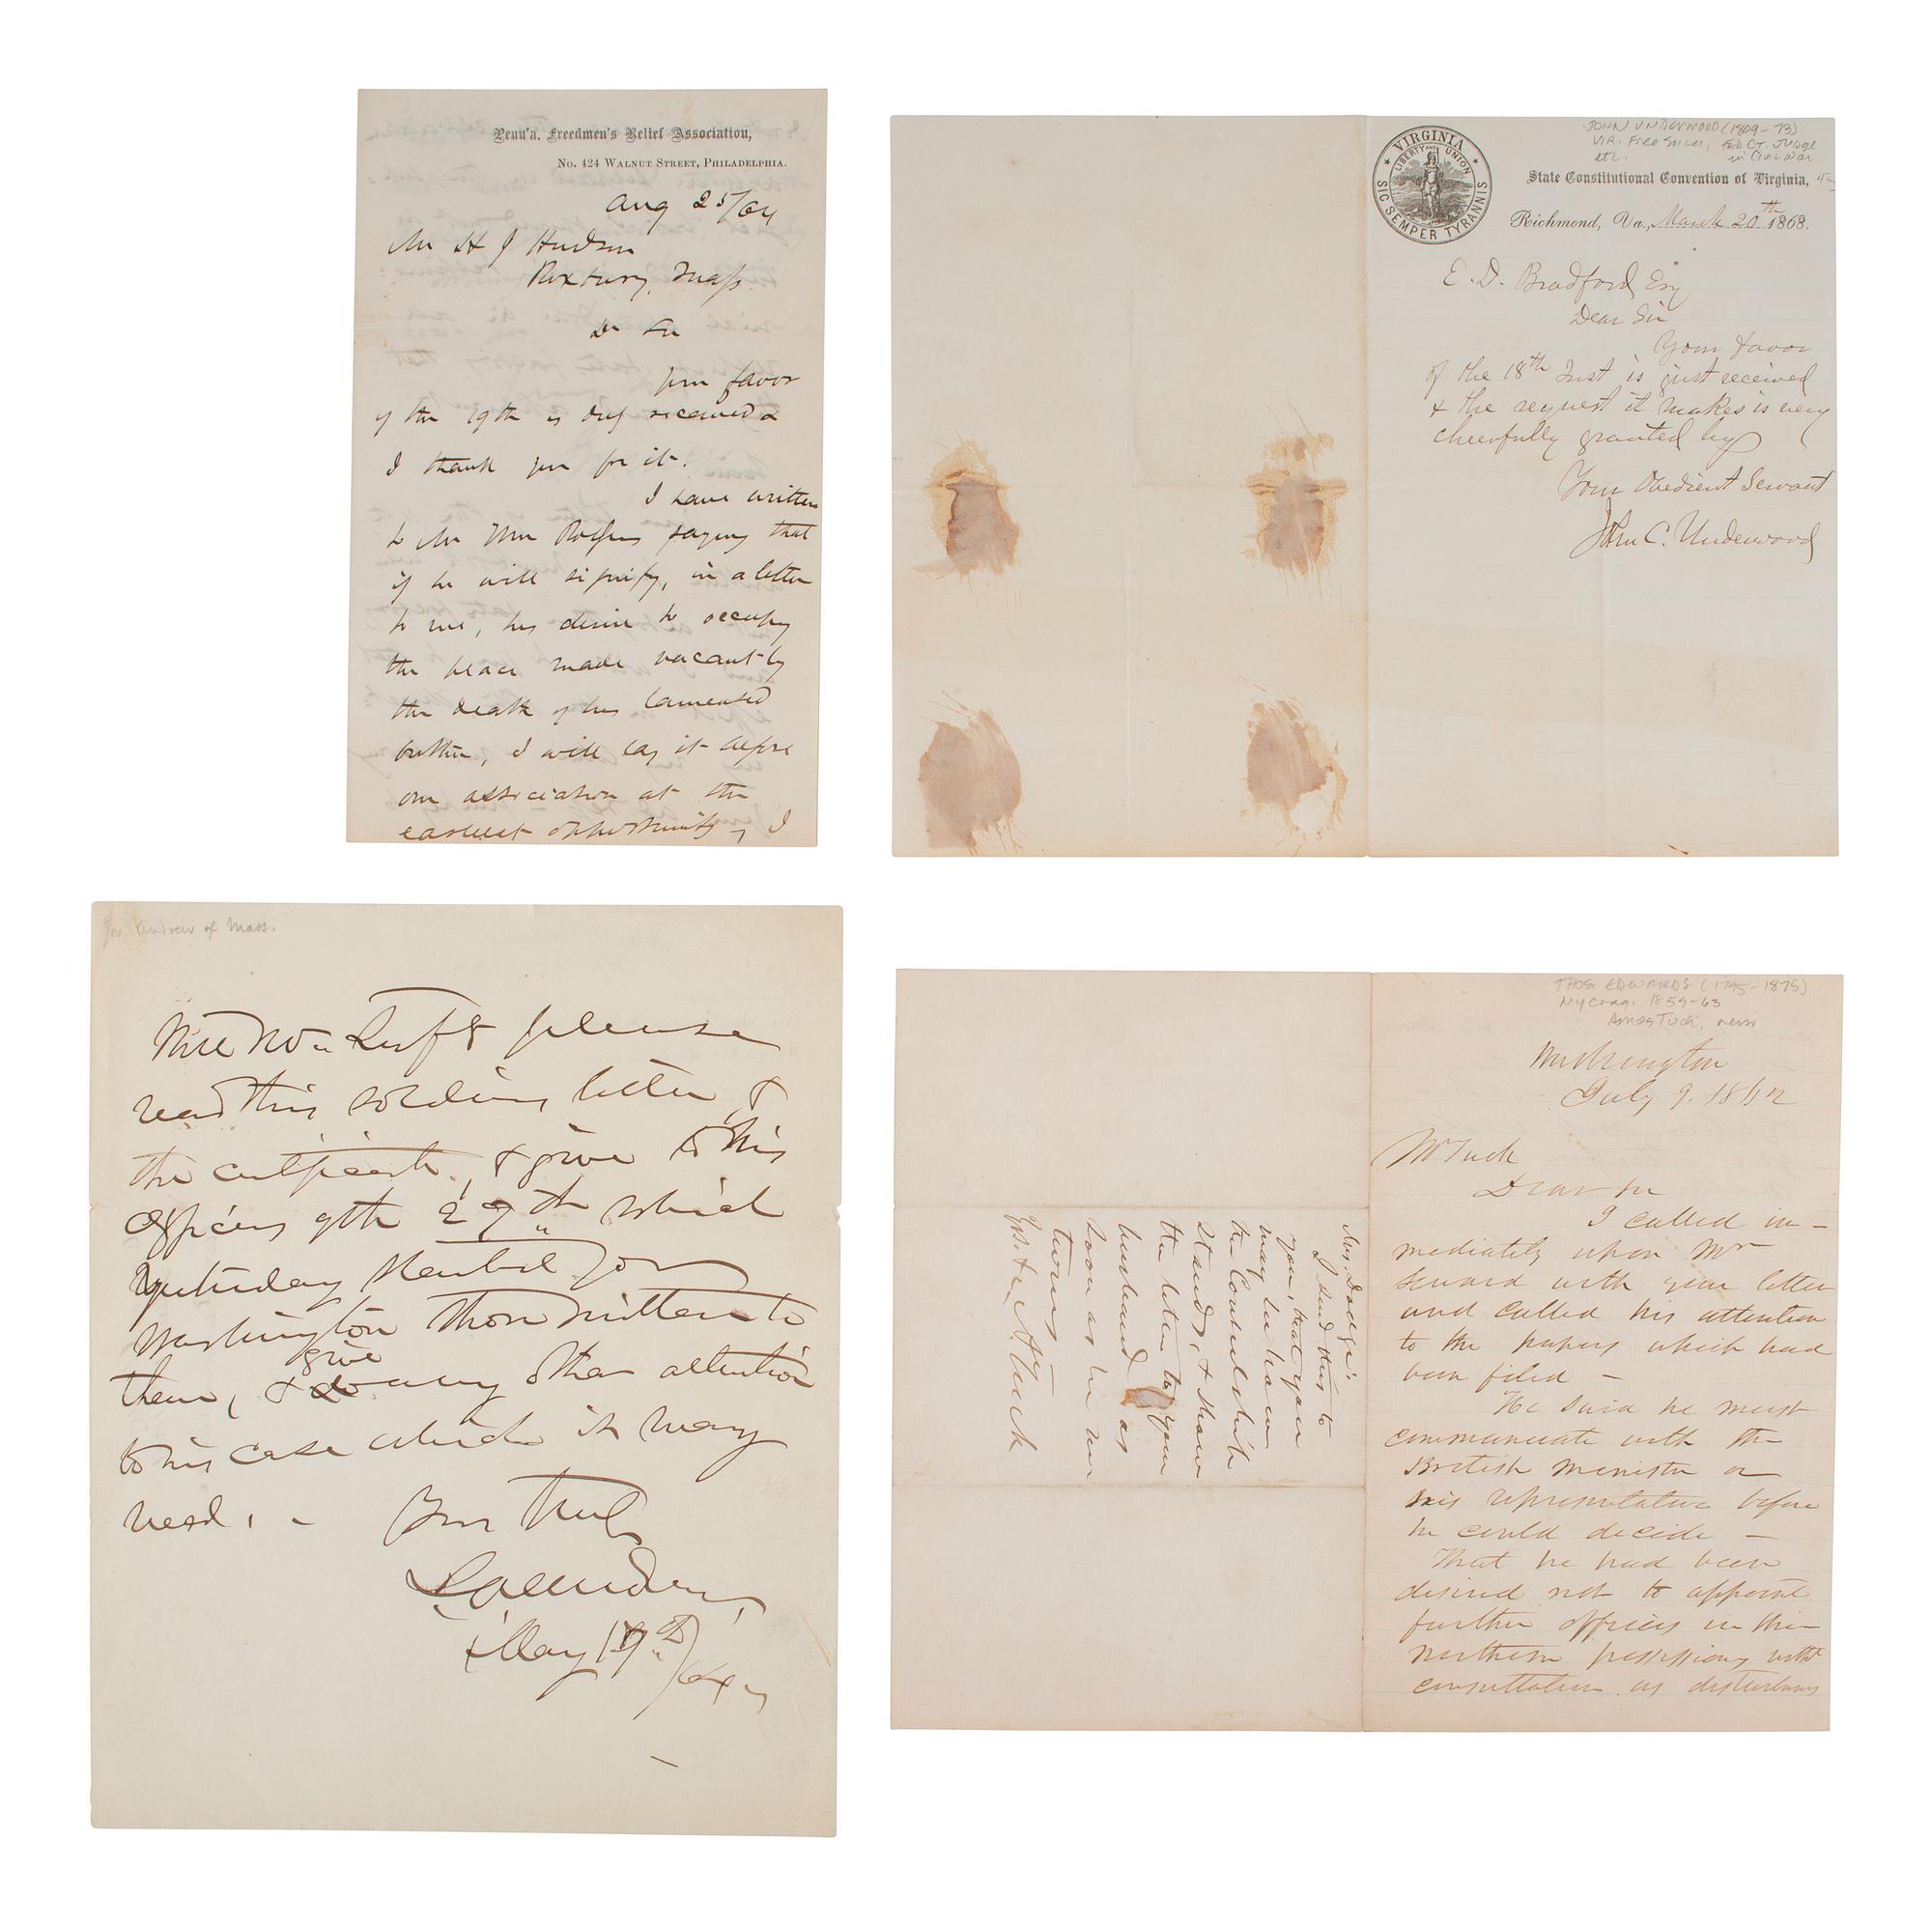 Penn'a. Freedmen's Relief Association,
No. 424 Walnut Street, Philadelphia.
Aug 25/64
Mr H J Hudson
Roxbury, Mass.
Dr Sir
Your favor
of the 19th is duly received &
I thank you for it.
I have written
to Mr Wm Rogers saying that
if he will signify, in a letter
to me, his desire to occupy
the place made vacant by
the death of his lamented
brother, I will lay it before
our association at the
earliest opportunity, I
JOHN UNDERWOOD (1809-73)
VIR. Free Soiler, Fed Ct. Judge
etc. in Civil War
VIRGINIA
LIBERTY AND UNION
SIC SEMPER TYRANNIS
State Constitutional Convention of Virginia,
Richmond, Va., March 20th 1868.
E. D. Bradford Esq
Dear Sir
Your favor
of the 18th Inst is just received
& the request it makes is very
cheerfully granted by
Your Obedient Servant
John C. Underwood
Gov. Andrew of Mass.
Will please
read this soldiers letter &
the & give to his
officers of the 29th which
yesterday started for
Washington those written to
them, & give any other attention
to his case which it may
need. -
Yours Truly
May 19th/64
THOS EDWARDS (1795-1875)
NY Cong. 1859-63
Amos Tuck,
Washington
July 9. 1862
Mr Tuck
Dear Sir
I called im-
mediately upon Mr
Seward with your letter
and called his attention
to the papers which had
been filed -
He said he must
communicate with the
British minister or
his representative before
he could decide -
That he had been
desired not to appoint
further officers in their
northern possessions with
consultation as disturbing
Mrs. Dodge:
I send this to
you, that you
may see how
the Consulship
stands, & show
the letter to your
husband as
soon as he re
turns
Yrs. &c A Tuck